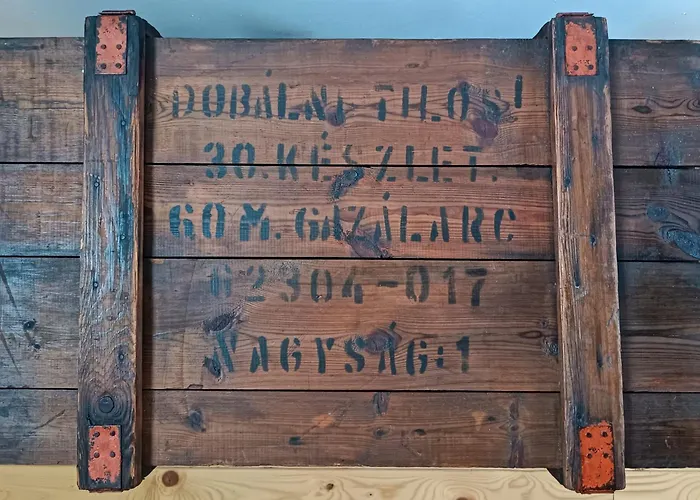 DOBÁLNI TILOS!
30. KÉSZLET.
60M. GÁZÁLARC
62304-017
NAGYSÁG:1